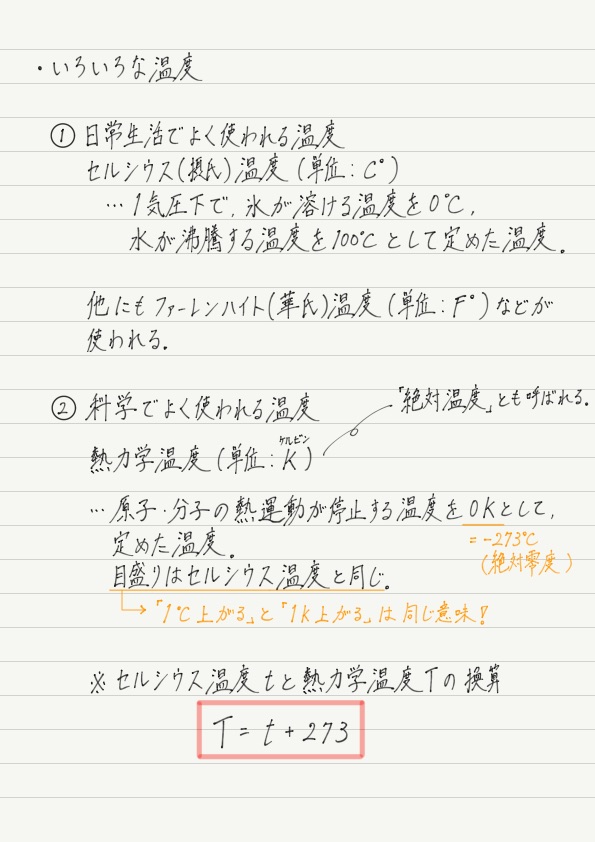 ・いろいろな温度
① 日常生活でよく使われる温度
セルシウス(摂氏)温度 (単位: C°)
… 1気圧下で, 氷が溶ける温度を0℃,
水が沸騰する温度を100℃として定めた温度。
他にもファーレンハイト(華氏)温度 (単位: F°) などが
使われる。
② 科学でよく使われる温度
「絶対温度」とも呼ばれる。
ケルビン
熱力学温度 (単位: K)
… 原子・分子の熱運動が停止する温度を0Kとして,
定めた温度。
= -273℃
(絶対零度)
目盛りはセルシウス温度と同じ。
→「1℃上がる」と「1K上がる」は同じ意味!
※ セルシウス温度tと熱力学温度Tの換算
T = t + 273